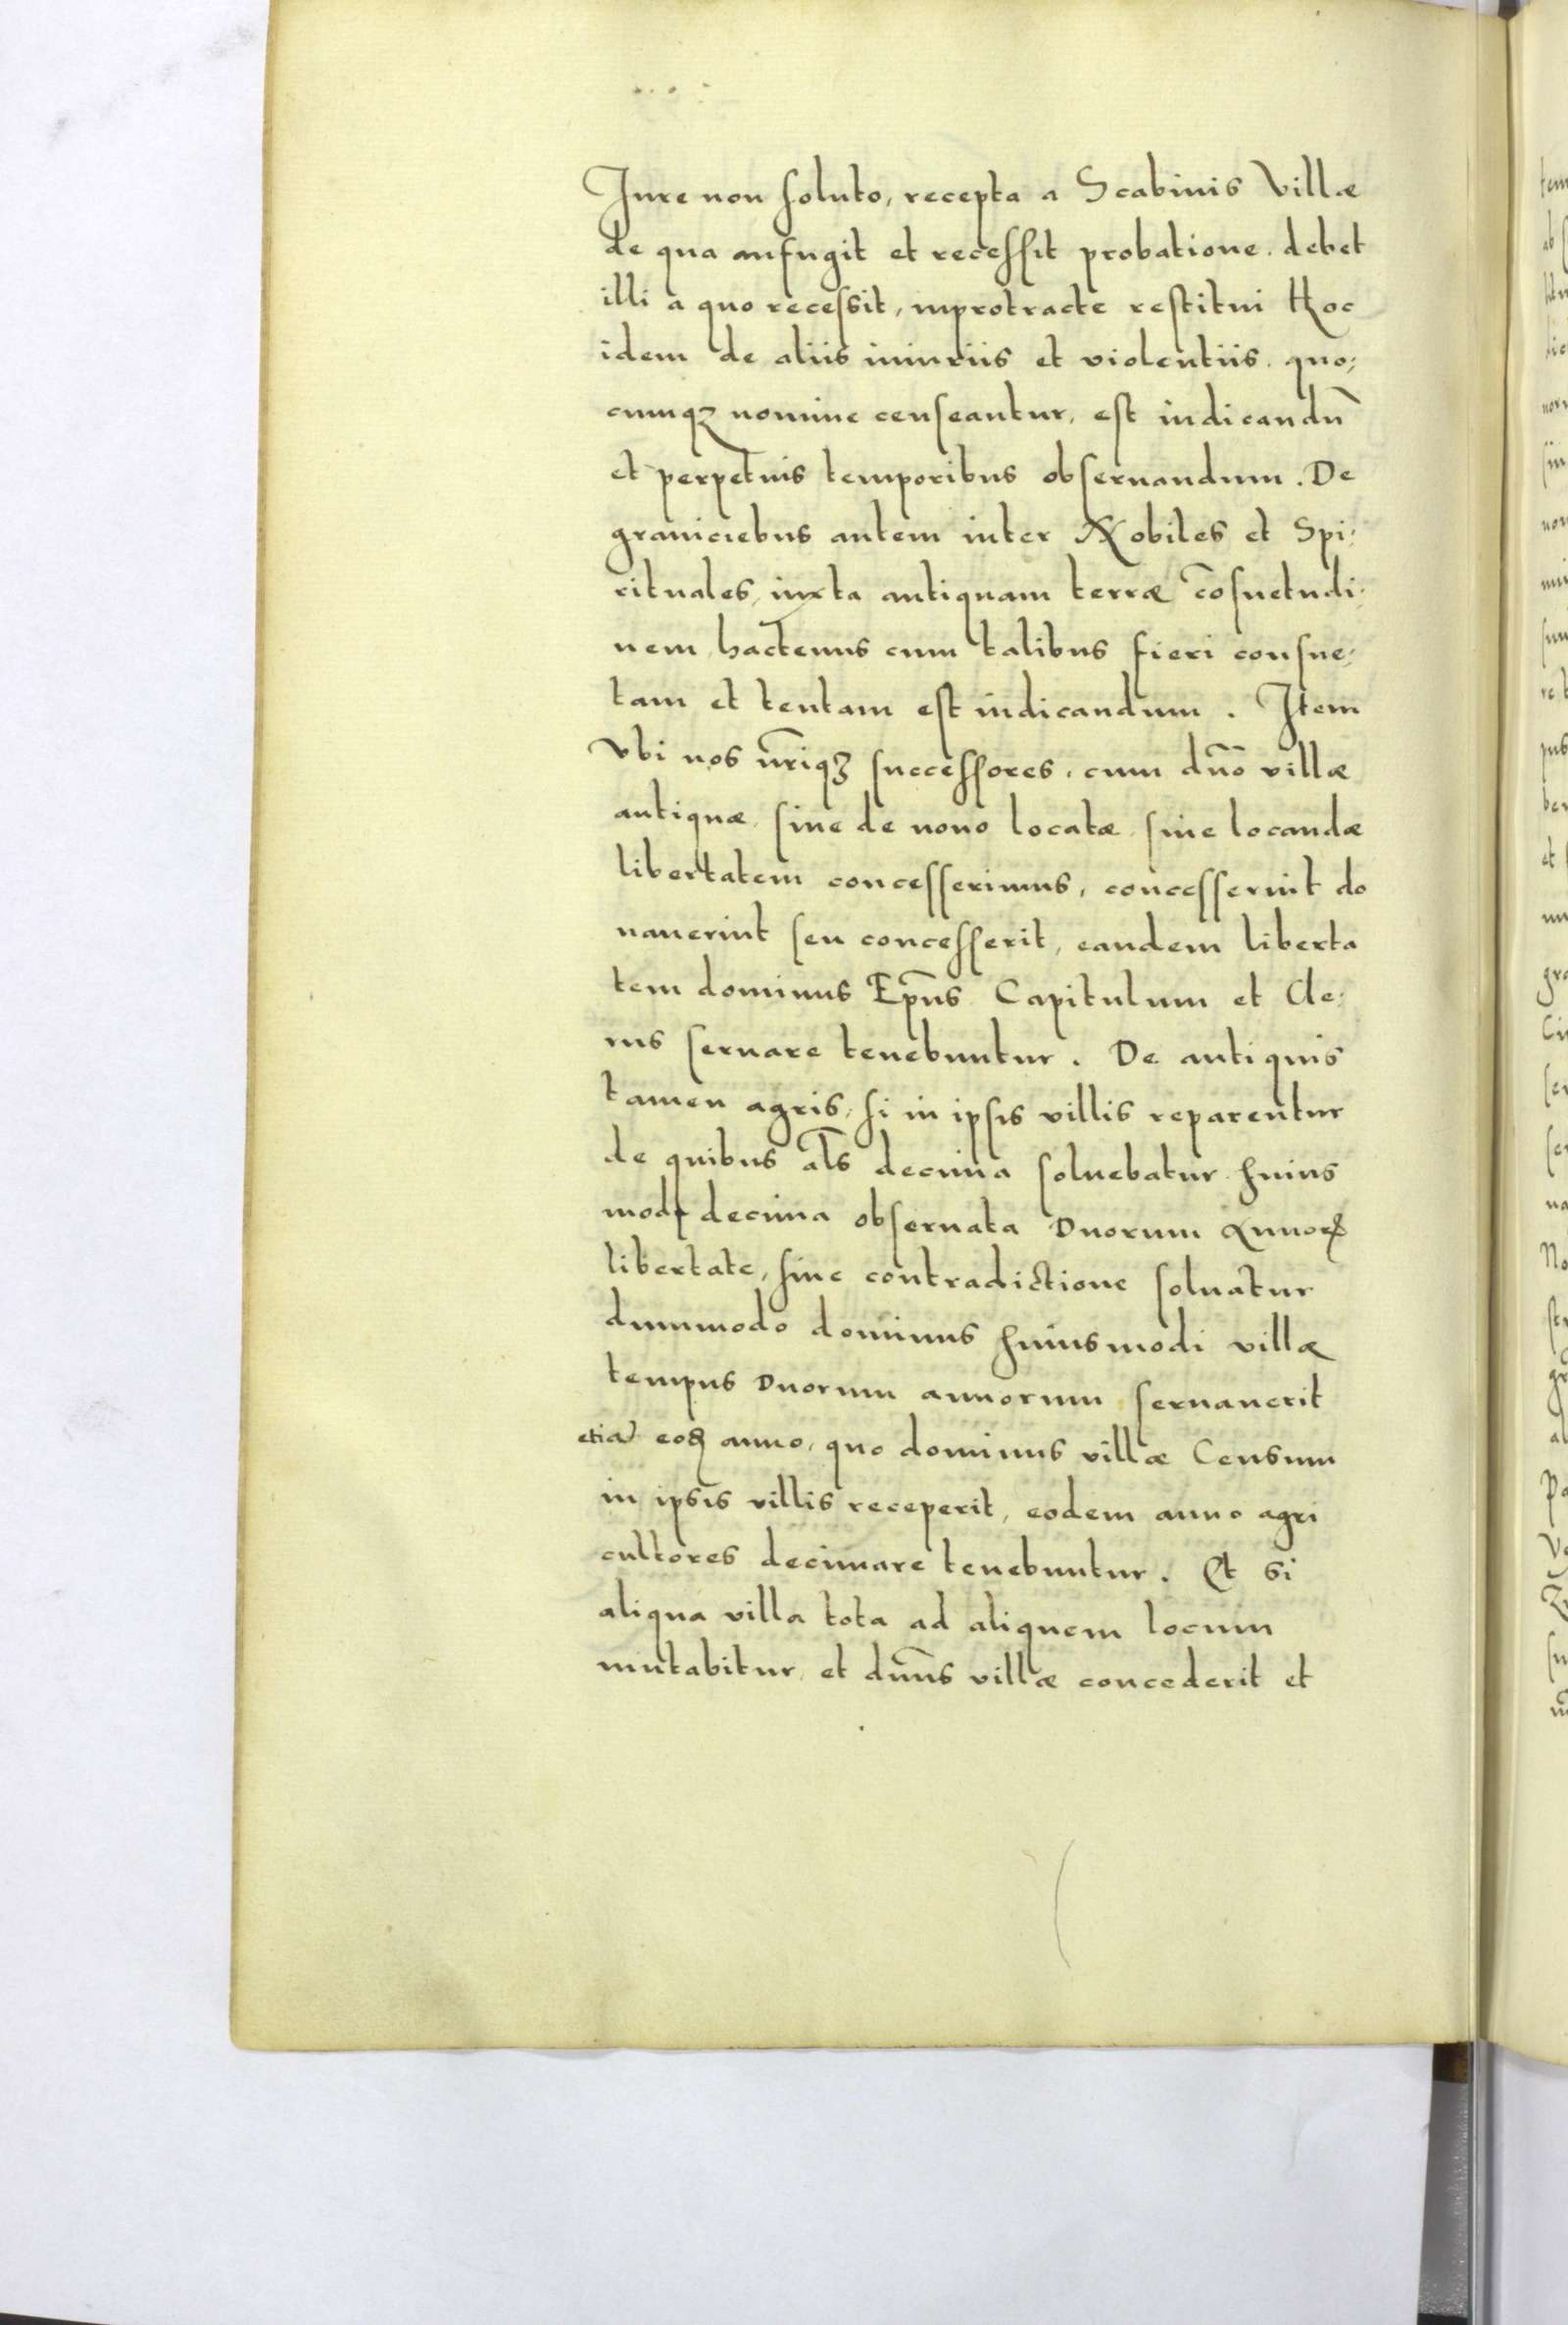 Jure non soluto, recepta a Scabinis Villæ
de qua aufugit et recessit probatione. debet
illi a quo recessit, inprotracte restitui Hoc
idem de aliis iniuriis et violentiis. quo,
cumqꝫ nomine censeantur, est iudicandū
et perpetuis temporibus obseruandum. De
graniciebus autem inter Nobiles et Spi,
rituales, iuxta antiquam terræ cōsuetudi,
nem, hactenus cum talibus fieri consue,
tam et tentam est iudicandum. Item
vbi nos nr̄iqꝫ successores, cum dn̄o villæ
antiquæ, siue de nouo locatæ, siue locandæ
libertatem concesserimus, concesserint do
nauerint seu concesserit, eandem liberta
tem dominus Ep̄us Capitulum et Cle,
rus seruare tenebuntur. De antiquis
tamen agris, si in ipsis villis reparentur
de quibus al̄s decima soluebatur huius
modi decima obseruata Duorum Annorꝝ
libertate, sine contradictione soluatur
dummodo dominus huiusmodi villæ
tempus Duorum annorum seruauerit
etiā eodꝫ anno, quo dominus villæ Censum
in ipsis villis receperit, eodem anno agri
cultores decimare tenebuntur. Et si
aliqua villa tota ad aliquem locum
mutabitur, et dn̄us villæ concederit et